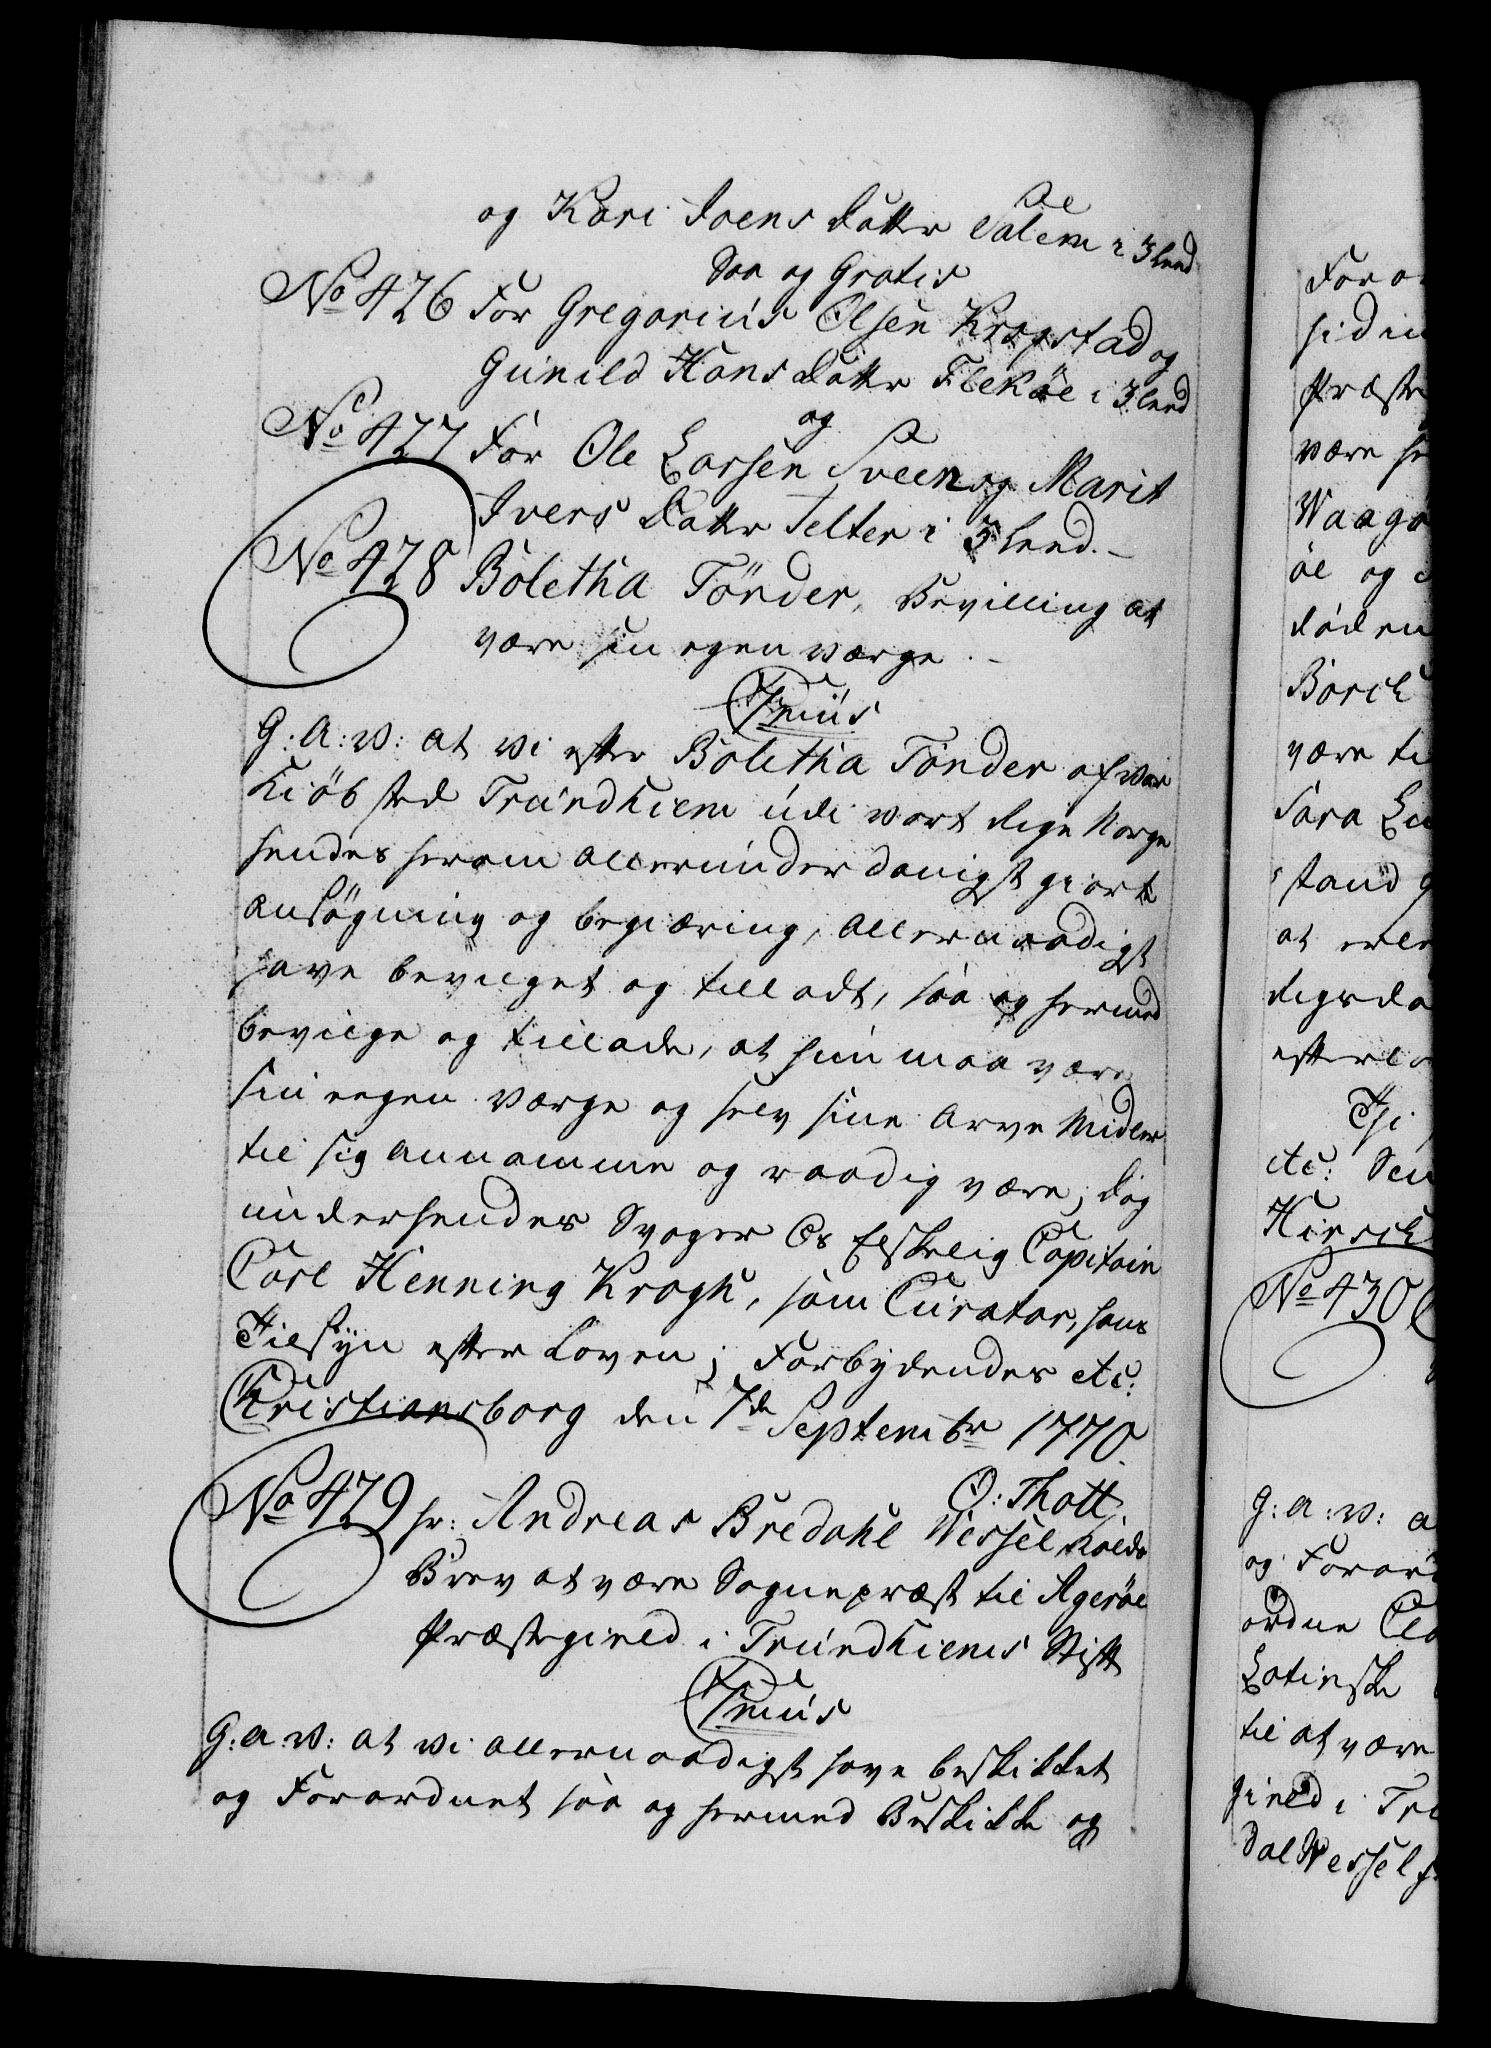 og Kari Joens Datter Salem i 3 leed
Saa og Gratis
No 426 For Gregorius Olsen Kragstad og
Gunild Hans Datter Flekøe i 3 leed
og
No 427 For Ole Larsen Sveen og Marit
Ivers Datter Telter i 3 leed.
No 428 Boletha Tönder, Bevilling at
være sin egen værge.
G: A: V: at vi efter Boletha Tönder af vor
Kiöbsted Trundhiem udi vort Rige Norge
hendes herom allerunderdanigst giorte
ansögning og begiæring, allernaadigst
have bevilget og tilladt, saa og hermed
bevilge og tillade, at hun maa være
sin egen værge og selv sine Arve Midler
til sig annamme og raadig være; dog
under hendes Svoger Os Elskelig Capitain
Carl Henning Krogh, som Curator, hans
Tilsyn efter Loven; Forbydendes etc:
Christiansborg den 7de Septembr 1770.
O: Thott
No 429 hr: Andreas Bredahl Wessel Kalds
Brev at være Sognepræst til Agerøe
Præstegield i Trundhiems Stift
G: A: V: at vi allernaadigst have beskikket
og Forordnet saa og hermed Beskikke og
være
Waagø
øe og
Borch
være ti
Sara
stand
at
Thi
etc:
Hirsch
No 430
G: a: v: a
og Foror
ordne
Latinske
til at være
gield i Tr
dal Wessel